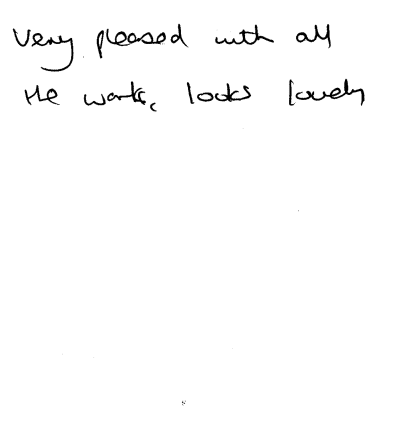 Very pleased with all
the work, looks lovely